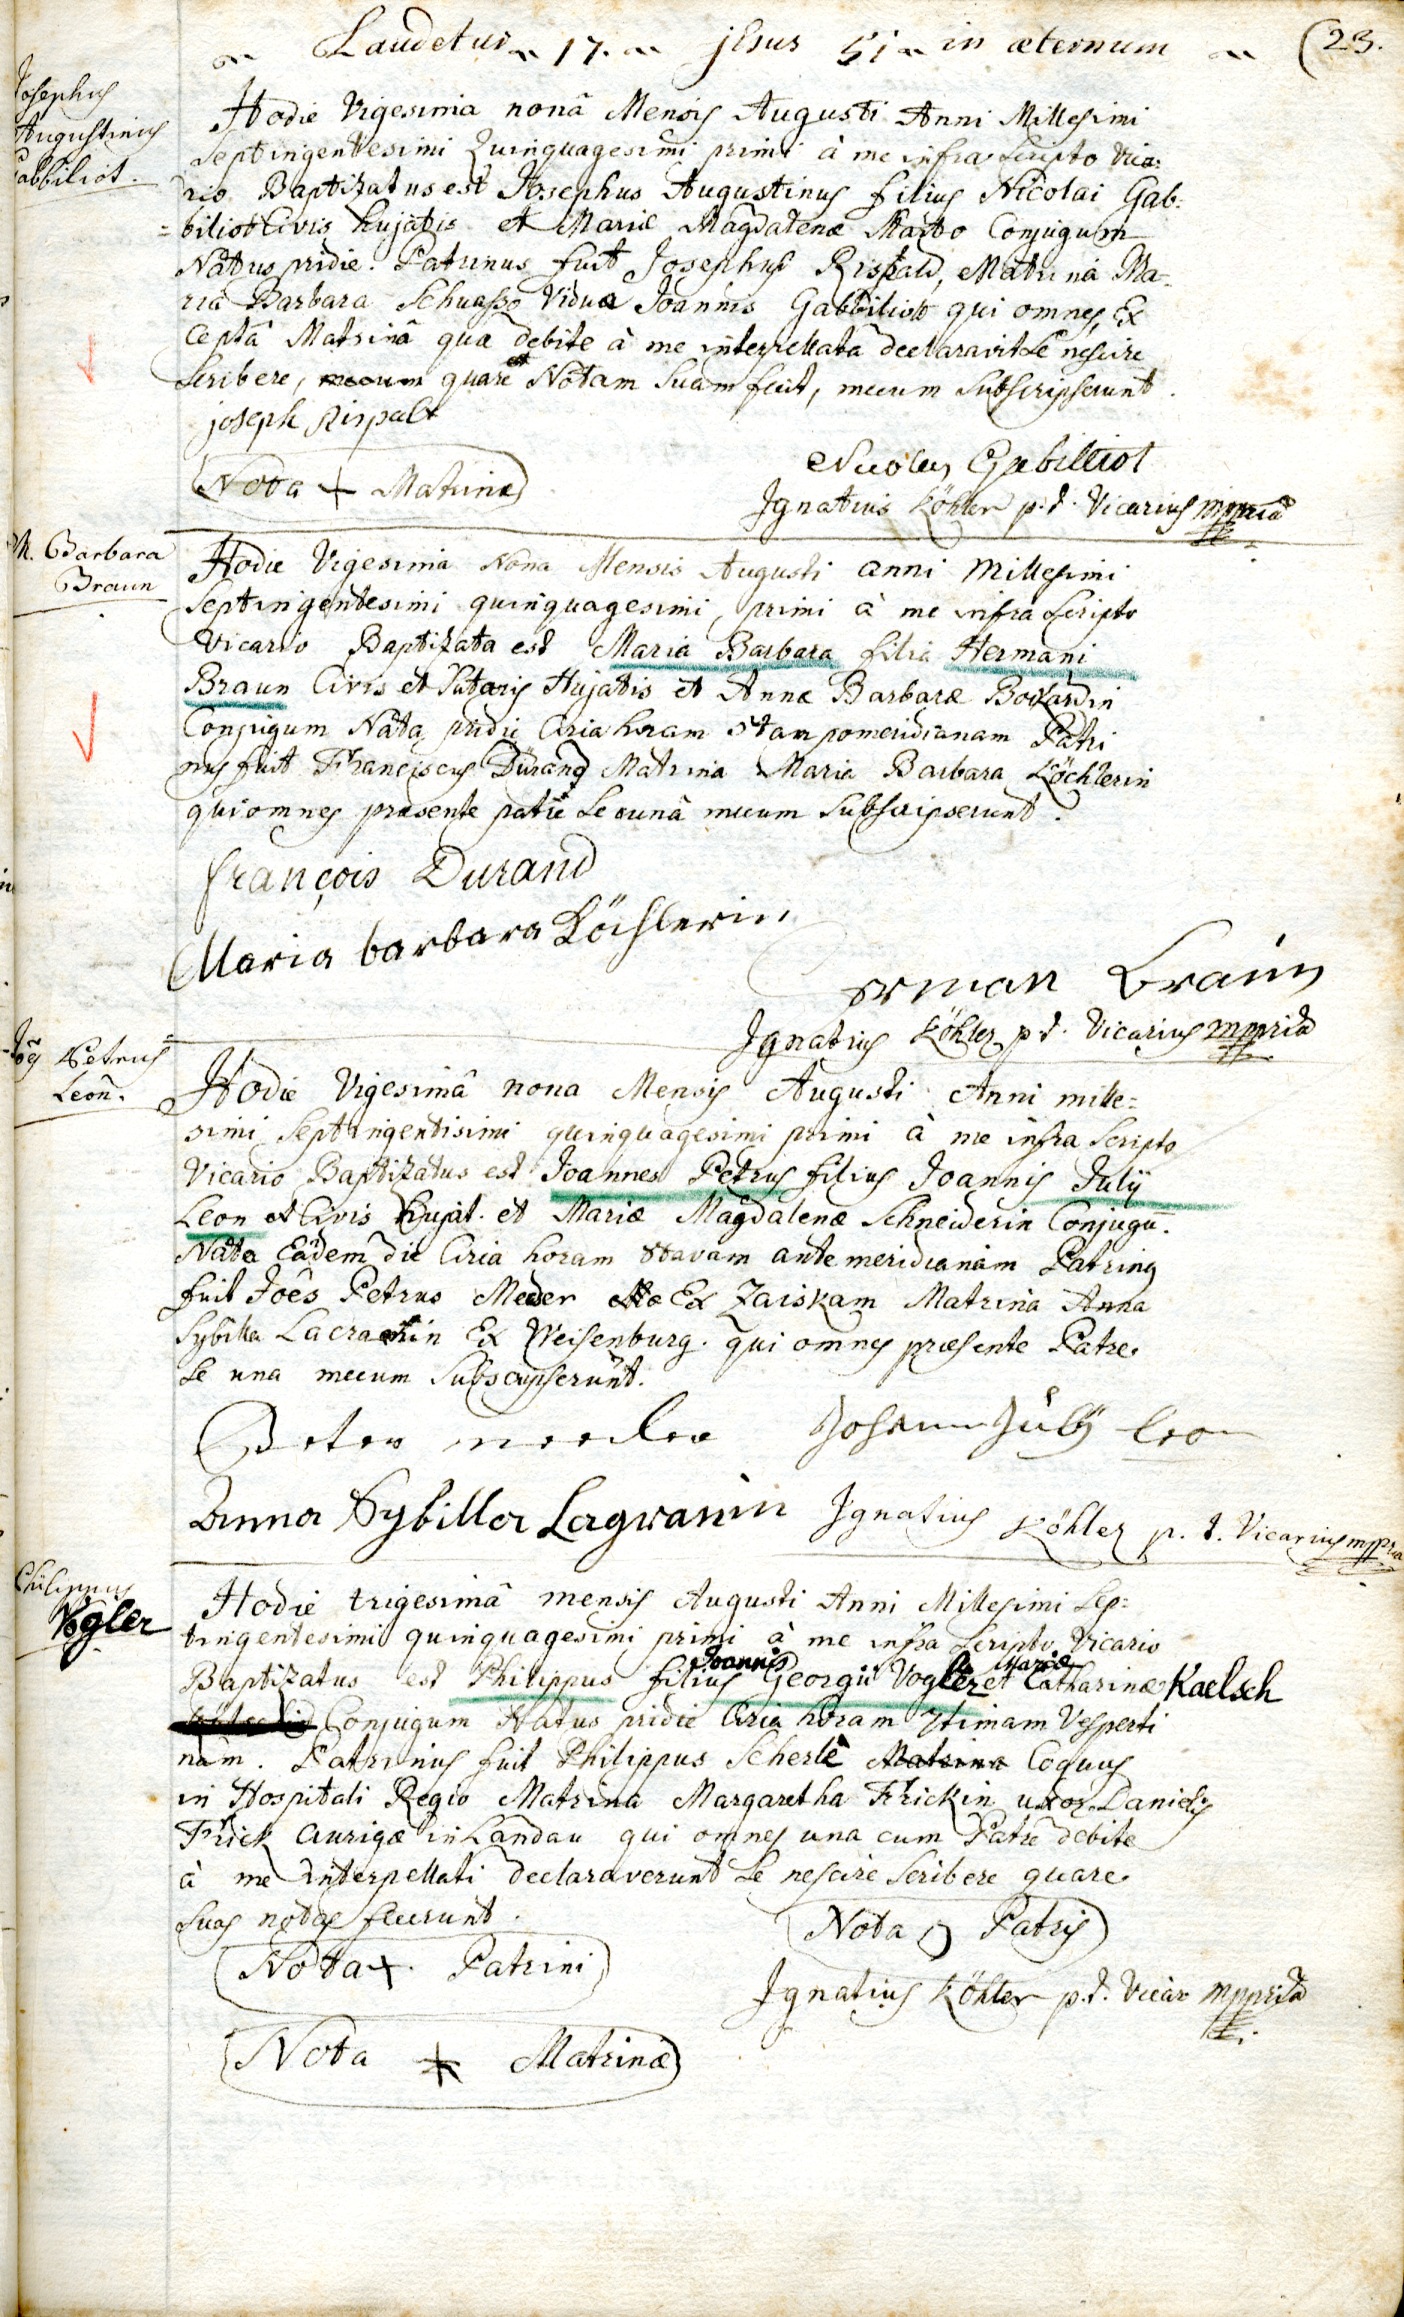 Laudetur 17. jesus 51 in æternum (23.
Josephus
Augustinus
Gabbiliot.
Hodie Vigesima nonâ Mensis Augusti Anni Millesimi
Septingentesimi Quinquagesimi primi à me infra Scripto Vica:
rio Baptizatus est Josephus Augustinus filius Nicolai Gab:
=biliot Civis hujatis et Mariæ Magdalenæ Marto Conjugum
Natus pridie. Patrinus fuit Josephus Rispald, Matrina Ma-
ria Barbara Schuasso Vidua Joannis Gabbiliott qui omnes, Ex
Ceptâ Matrinâ qua debite à me interpellata declaravit Se nescire
Scribere, mecum quare et Notam Suam fecit, mecum Subscripserunt.
joseph Rispalt
Nota + Matrinæ
Nicolas Gabilliot
Ignatius Köhler p. t. Vicarius mppria
M. Barbara
Braun
Hodie Vigesima Nona Mensis Augusti anni Millesimi
Septingentesimi quinquagesimi, primi à me infra Scripto
Vicario Baptizata est Maria Barbara filia Hermani
Braun Civis et Hujatis et Annæ Barbaræ
Conjugum Nata pridie Circa horam 5tam pomeridianam Patri
nus fuit Franciscus Dürand Matrina Maria Barbara Köchlerin
qui omnes præsente patre Se una mecum Subscripserunt.
françois Durand
Maria barbara Köchlerin
erman Braun
Ignatius Köhler p. t. Vicarius mppria
Joês Petrus
Leon.
Hodie Vigesimâ nona Mensis Augusti Anni mille=
simi Septingentisimi quinquagesimi primi à me infra Scripto
Vicario Baptizatus est Joannes Petrus filius Joannis Julÿ
Leon et Civis hujat. et Mariæ Magdalenæ Schneiderin Conjugū.
Nata Eâdem die Circa horam octavam ante meridianam Patrinus
fuit Joês Petrus Meder Ex Zaiskam Matrina Anna
Sybilla Ex Weisenburg. qui omnes præsente Patre
Se una mecum Subscripserunt.
Peter meeder Johann Julÿ leon
Anna Sybilla Lagranin Ignatius Köhler p. t. Vicarius mppria
Philippus
Vogler
Hodie trigesimâ mensis Augusti Anni Millesimi Sep=
tingentesimi quinquagesimi primi à me infra Scripto Vicario
Joannis Mariæ
Baptizatus est Philippus filius Georgii Vogler et Catharinæ Kaelsch
Conjugum Natus pridie Circa horam 7timam Vesperti
nam. Patrinus fuit Philippus Scherlè Matrina Coquus
in Hospitali Regio Matrina Margaretha Frickin uxor Danielis
Frick Aurigæ in Landau qui omnes una cum Patre debite
à me interpellati declaraverunt Se nescire Scribere quare
Suas notas fecerunt.
Nota Patris
Nota + Patrini
Ignatius Köhler p. t. Vicar mppria
Nota + Matrinæ